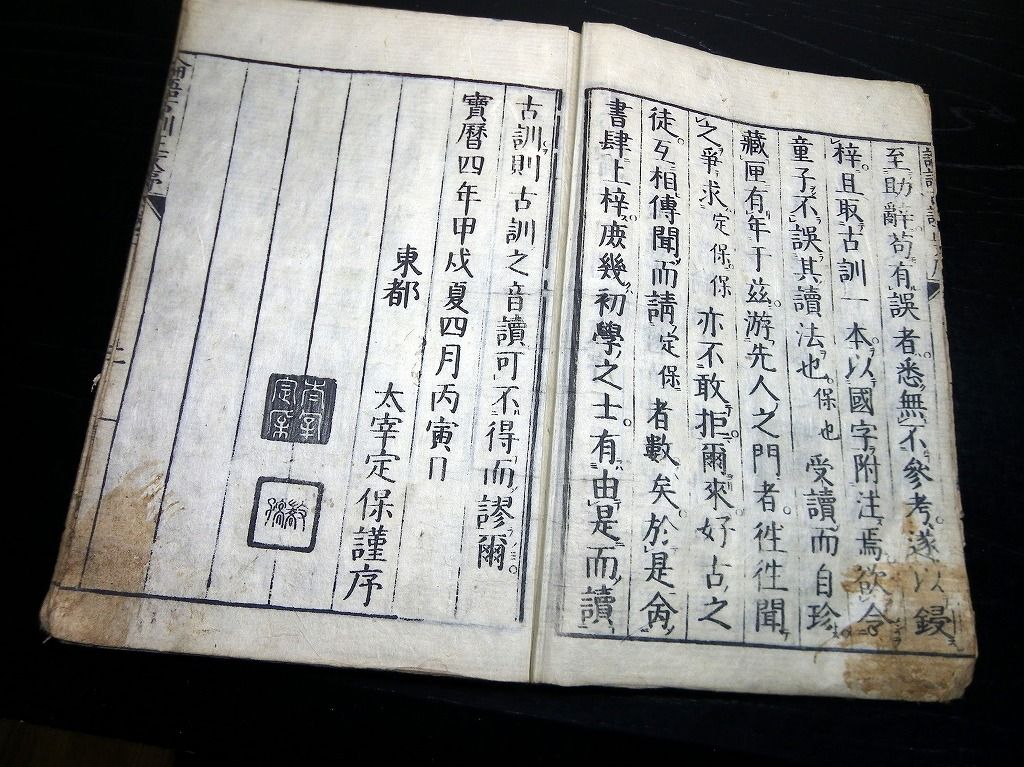 至助辭苟有誤者悉無不參考遂以鋟
梓且取古訓一本以國字附注焉欲令
童子不誤其讀法也保也受讀而自珍
藏匣有年于茲游先人之門者徃徃聞
之爭求定保保亦不敢拒爾來好古之
徒互相傳聞而請定保者數矣於是命
書肆上梓庻幾初學之士有由是而讀
古訓則古訓之音讀可不得而謬爾
寶曆四年甲戌夏四月丙寅日
東都
太宰定保謹序